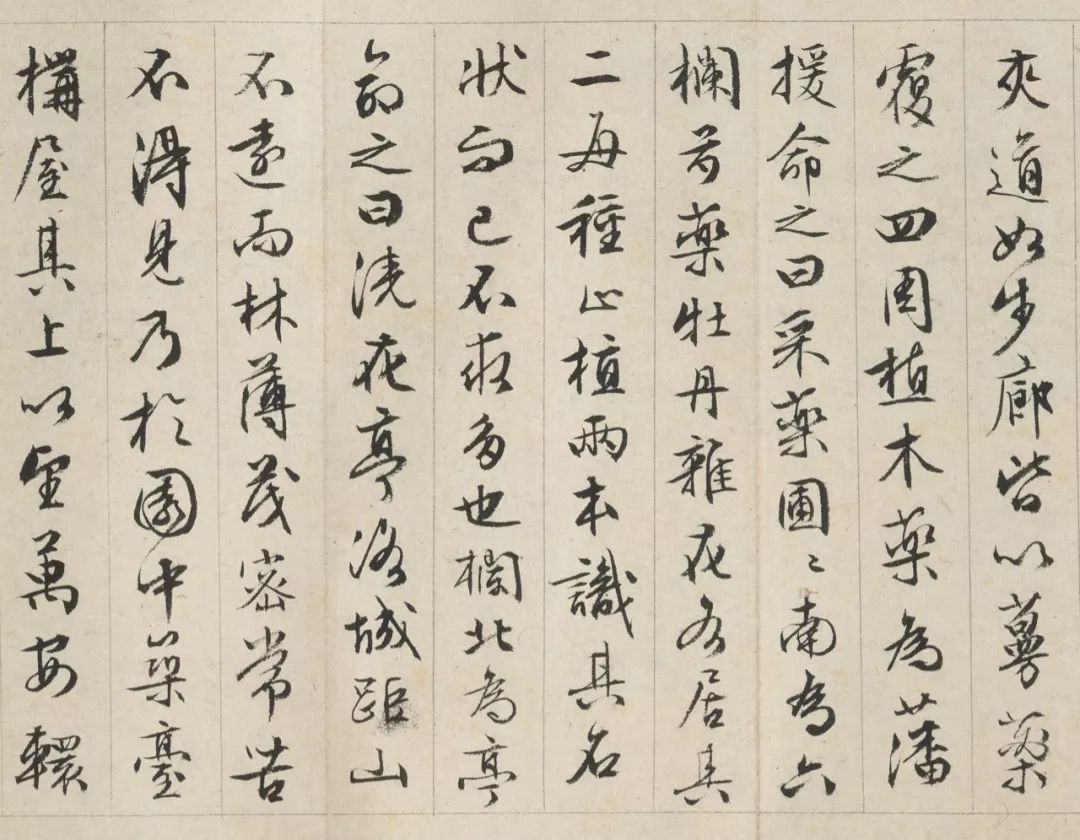 夾道如步廊皆以蔓藥
覆之四周植木藥為藩
援命之曰采藥圃〻南為六
欄芍藥牡丹雜花各居其
二每種止植兩本識其名
狀而已不求多也欄北為亭
命之曰澆花亭洛城距山
不遠而林薄茂密常苦
不得見乃於園中築臺
構屋其上以望萬安轘